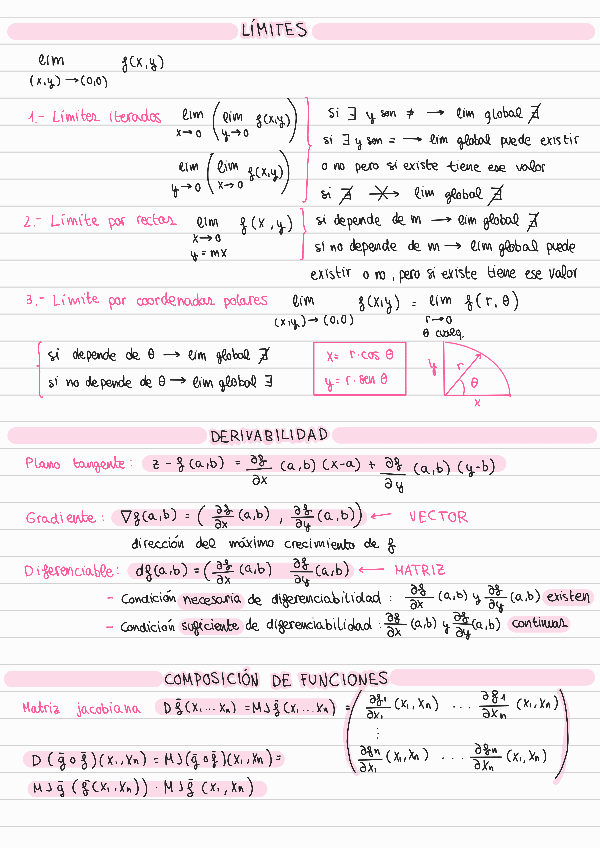 LÍMITES
lim f(x,y)
(x,y) → (0,0)
1.- Límites iterados lim ( lim f(x,y) ) si ∃ y son ≠ → lim global ∄
x→0 y→0
si ∃ y son = → lim global puede existir
lim ( lim f(x,y) ) o no pero si existe tiene ese valor
y→0 x→0
si ∄ ↛ lim global ∄
2.- Límite por rectas lim f(x,y) si depende de m → lim global ∄
x→0
y=mx si no depende de m → lim global puede
existir o no, pero si existe tiene ese valor
3.- Límite por coordenadas polares lim f(x,y) = lim f(r,θ)
(x,y)→(0,0) r→0
θ cualq.
si depende de θ → lim global ∄
si no depende de θ → lim global ∃
x= r·cos θ
y= r·sen θ
y r θ
x
DERIVABILIDAD
Plano tangente: z - f(a,b) = ∂f/∂x (a,b) (x-a) + ∂f/∂y (a,b) (y-b)
Gradiente: ∇f(a,b) = ( ∂f/∂x (a,b) , ∂f/∂y (a,b) ) ← VECTOR
dirección del máximo crecimiento de f
Diferenciable: df(a,b) = ( ∂f/∂x (a,b) ∂f/∂y (a,b) ) ← MATRIZ
- Condición necesaria de diferenciabilidad : ∂f/∂x (a,b) y ∂f/∂y (a,b) existen
- Condición suficiente de diferenciabilidad : ∂f/∂x (a,b) y ∂f/∂y (a,b) continuas
COMPOSICIÓN DE FUNCIONES
Matriz jacobiana D f̄ (x₁ ... xₙ) = MJ f̄ (x₁ ... xₙ) = ( ∂f₁/∂x₁ (x₁,xₙ) ... ∂f₁/∂xₙ (x₁,xₙ)
⋮
∂fₙ/∂x₁ (x₁,xₙ) ... ∂fₙ/∂xₙ (x₁,xₙ) )
D (ḡ o f̄)(x₁,xₙ) = MJ(ḡ o f̄)(x₁,xₙ) =
MJ ḡ (f̄(x₁,xₙ)) · MJ f̄ (x₁,xₙ)